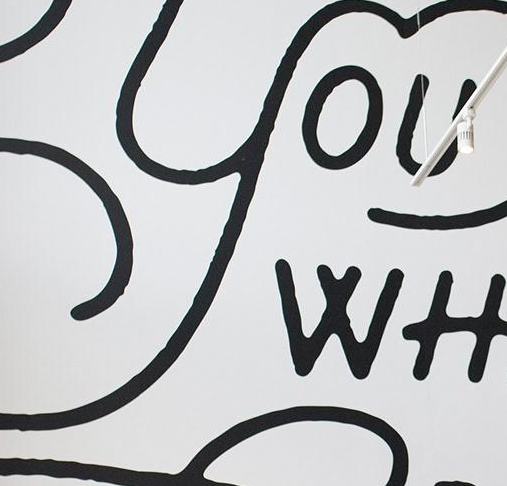 you
WH